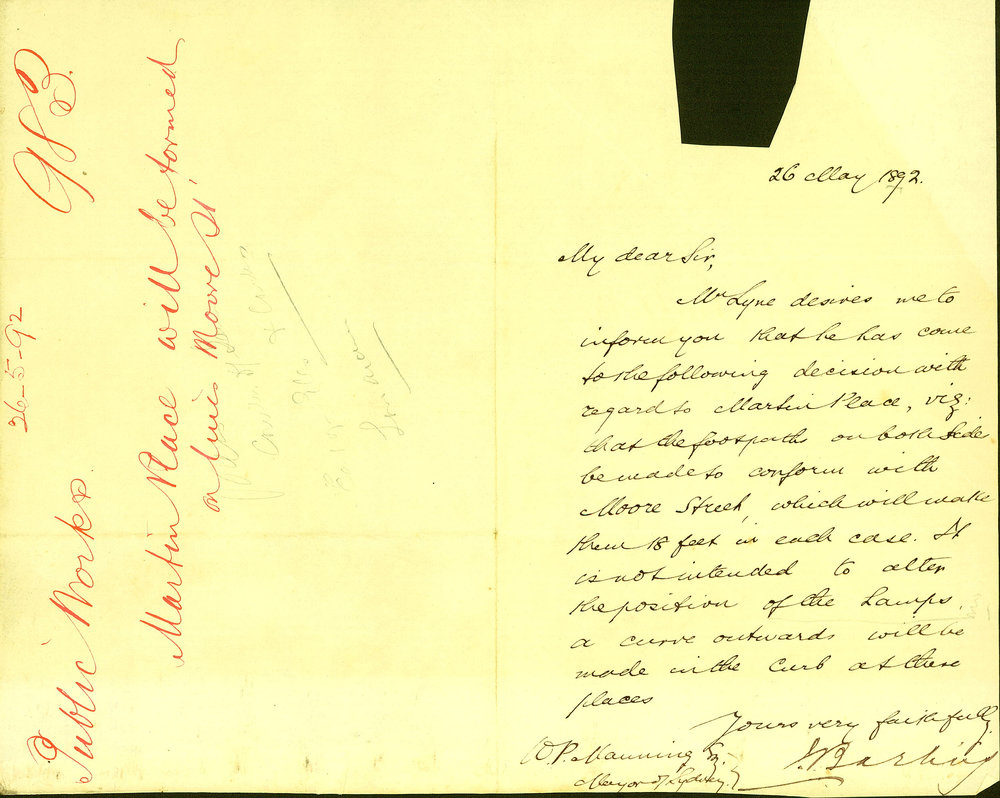 Public Works
26-5-92
G.S.B.
Martin Place will be formed
on line Moore St
26 May 1892.
My dear Sir,
Mr Lyne desires me to
inform you that he has come
to the following decision with
regard to Martin Place, viz:
that the footpaths on both side
be made to conform with
Moore Street, which will make
them 18 feet in each case. It
is not intended to alter
the position of the Lamps,
a curve outwards will be
made in the Curb at these
places
Yours very faithfully
J Barling
W.P. Manning Esq.
Mayor of Sydney.